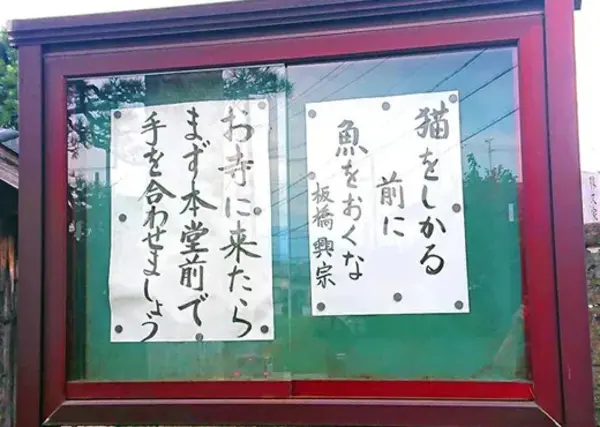 猫をしかる
前に
魚をおくな
板橋興宗
お寺に来たら
まず本堂前で
手を合わせましょう